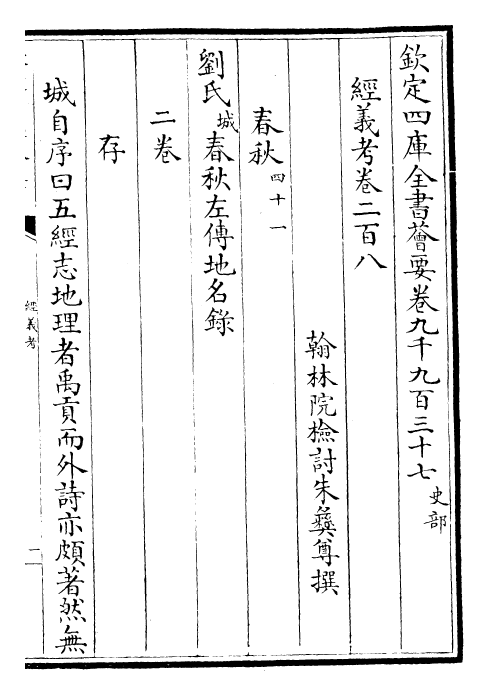 欽定四庫全書薈要卷九千九百三十七 史部
經義考卷二百八
翰林院檢討朱彝尊撰
春秋 四十一
劉氏城春秋左傳地名錄
二卷
存
城自序曰五經志地理者禹貢而外詩亦頗著然無
經義考
二